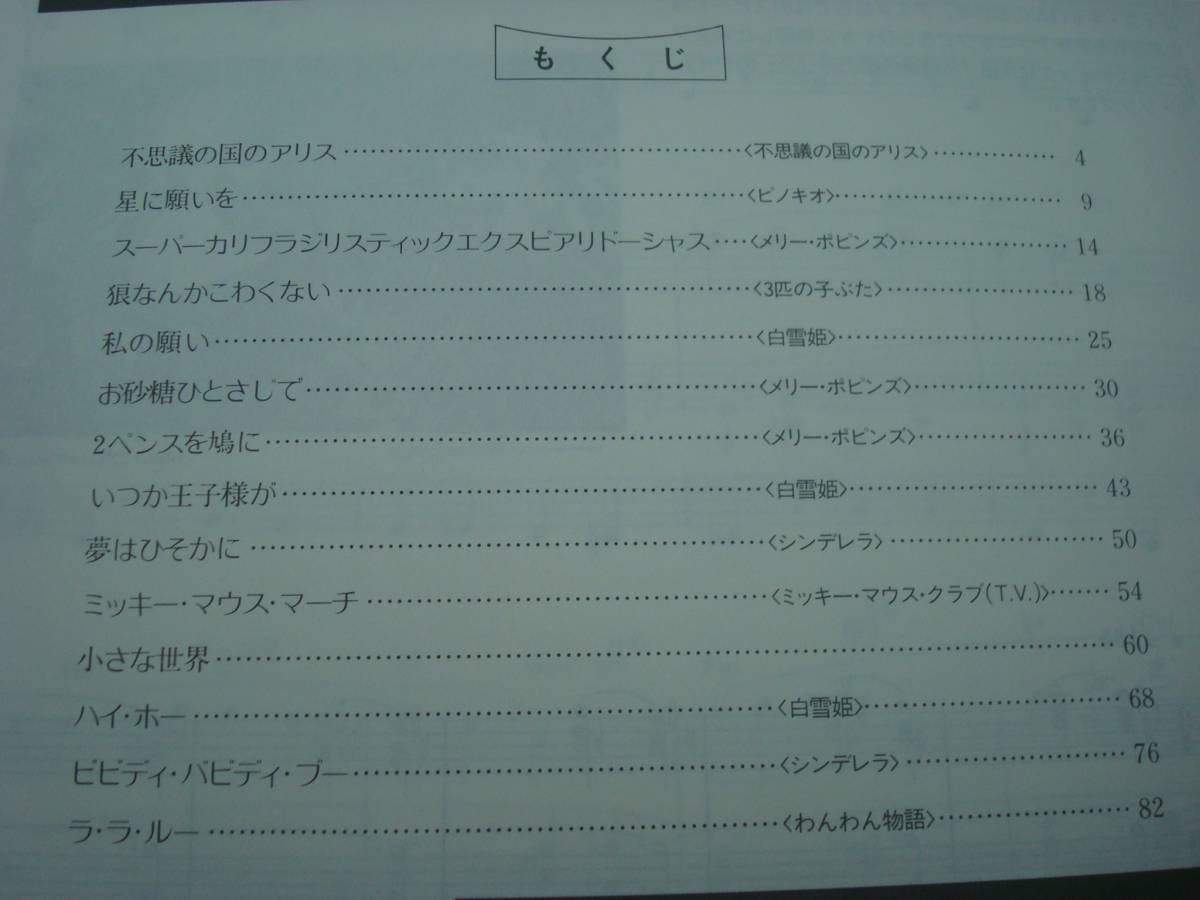 もくじ
不思議の国のアリス……………………………………〈不思議の国のアリス〉………… 4
星に願いを………………………………………………〈ピノキオ〉…………………… 9
スーパーカリフラジリスティックエクスピアリドーシャス‥‥〈メリー・ポピンズ〉……………… 14
狼なんかこわくない……………………………………〈3匹の子ぶた〉………………… 18
私の願い…………………………………………………〈白雪姫〉……………………… 25
お砂糖ひとさじで………………………………………〈メリー・ポピンズ〉……………… 30
2ペンスを鳩に……………………………………………〈メリー・ポピンズ〉……………… 36
いつか王子様が…………………………………………〈白雪姫〉……………………… 43
夢はひそかに……………………………………………〈シンデレラ〉…………………… 50
ミッキー・マウス・マーチ………………………………〈ミッキー・マウス・クラブ(T.V.)〉…… 54
小さな世界……………………………………………………………………………… 60
ハイ・ホー…………………………………………………〈白雪姫〉……………………… 68
ビビディ・バビディ・ブー………………………………〈シンデレラ〉…………………… 76
ラ・ラ・ルー………………………………………………〈わんわん物語〉………………… 82